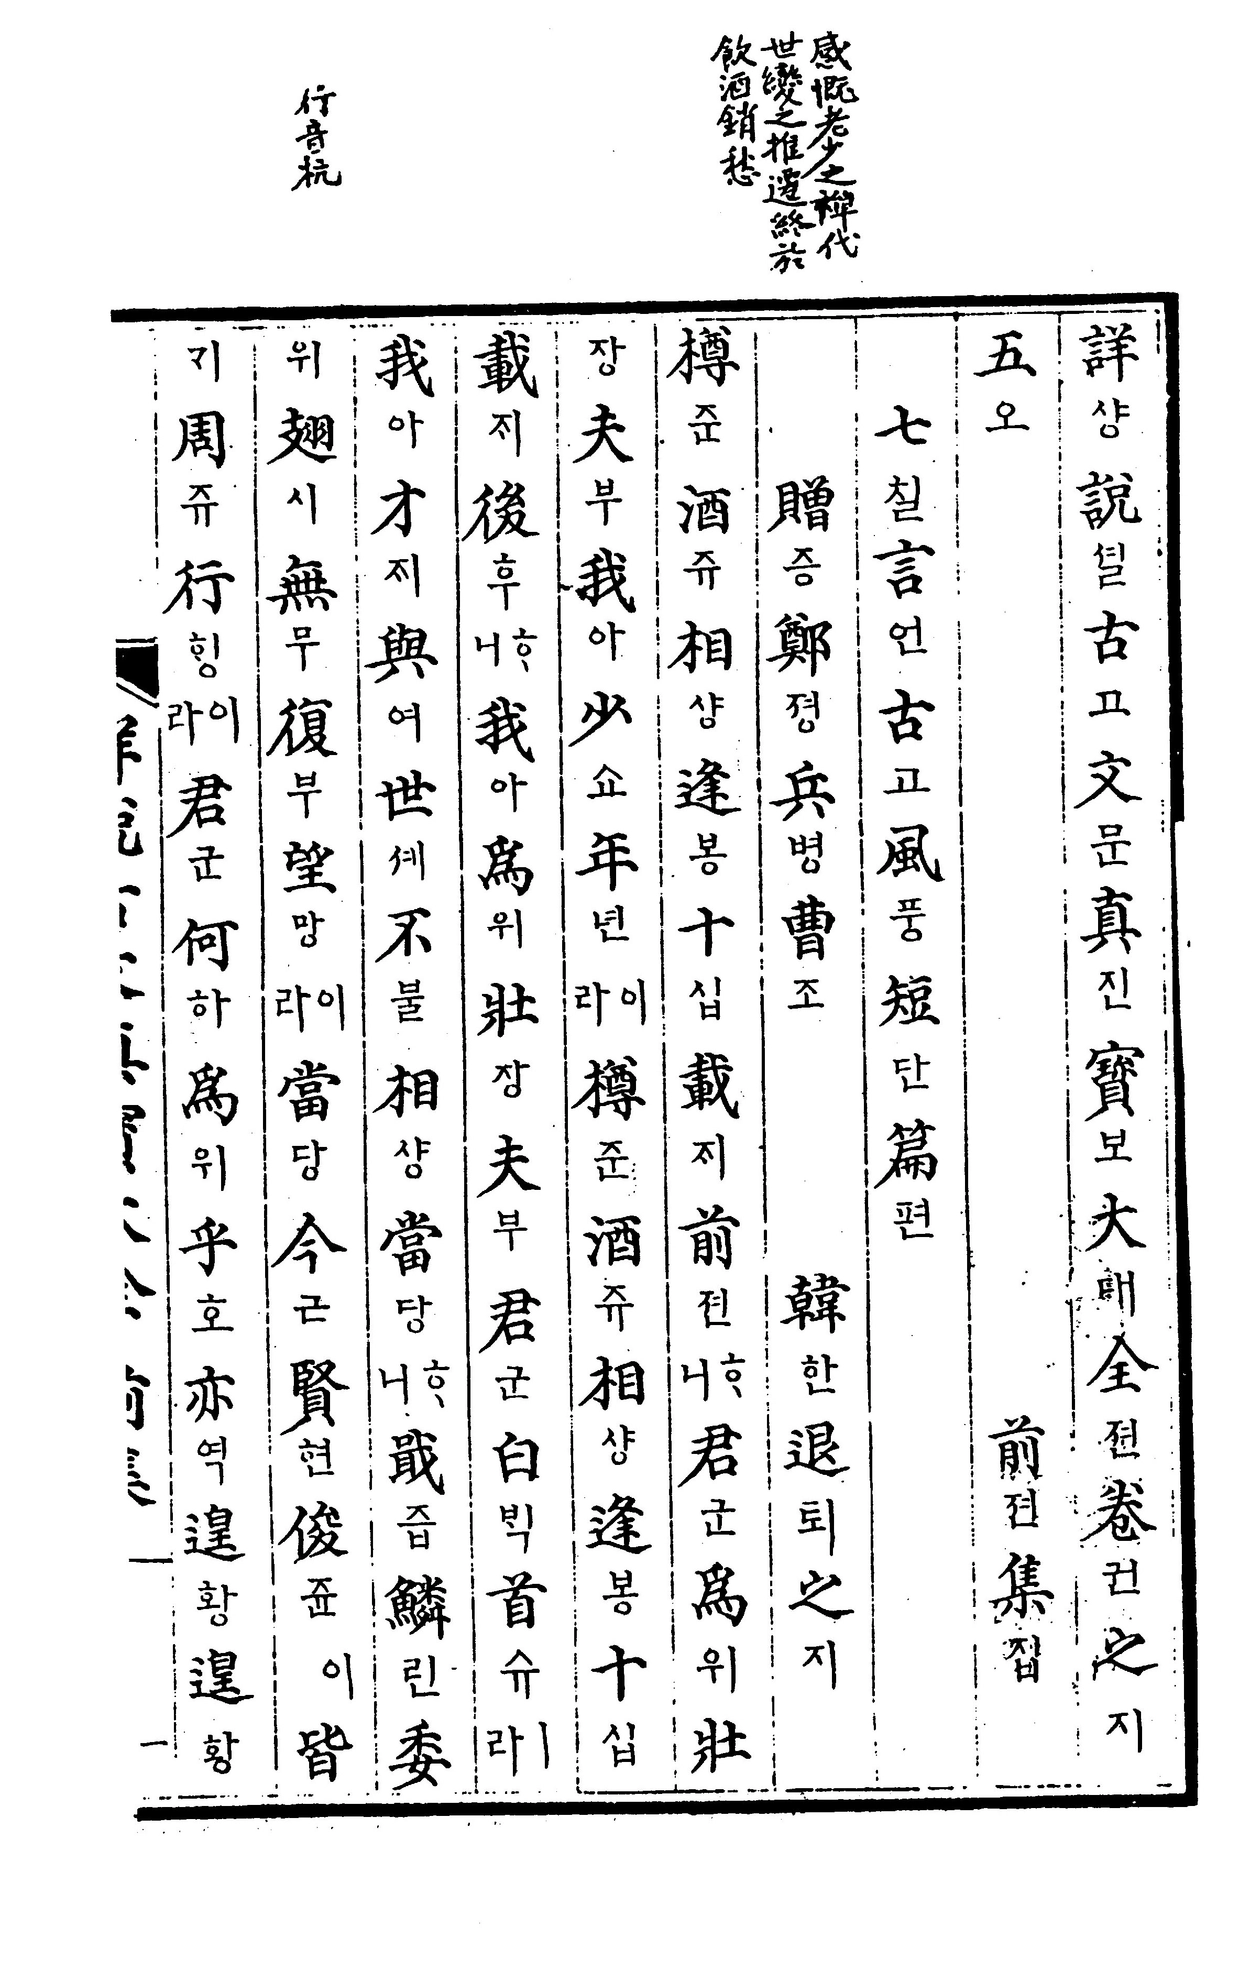 感慨老少之禪代
世變之推遷終於
飮酒銷愁
行音杭
詳샹說셜古고文문真진寶보大대全젼卷권之지
五오 前젼集집
七칠言언古고風풍短단篇편
贈증鄭졍兵병曹조 韓한退퇴之지
樽쥰酒쥬相샹逢봉十십載ᄌᆡ前젼ᄒᆞ니君군爲위壯
장夫부我아少쇼年년이라樽쥰酒쥬相샹逢봉十십
載ᄌᆡ後후ᄒᆞ니我아爲위壯장夫부君군白ᄇᆡᆨ首슈ㅣ라
我아才ᄌᆡ與여世셰不불相샹當당ᄒᆞ니戢즙鱗린委
위翅시無무復부望망이라當당今금賢현俊쥰이皆
ᄀᆡ周쥬行ᄒᆡᆼ이라君군何하爲위乎호亦역遑황遑황
一